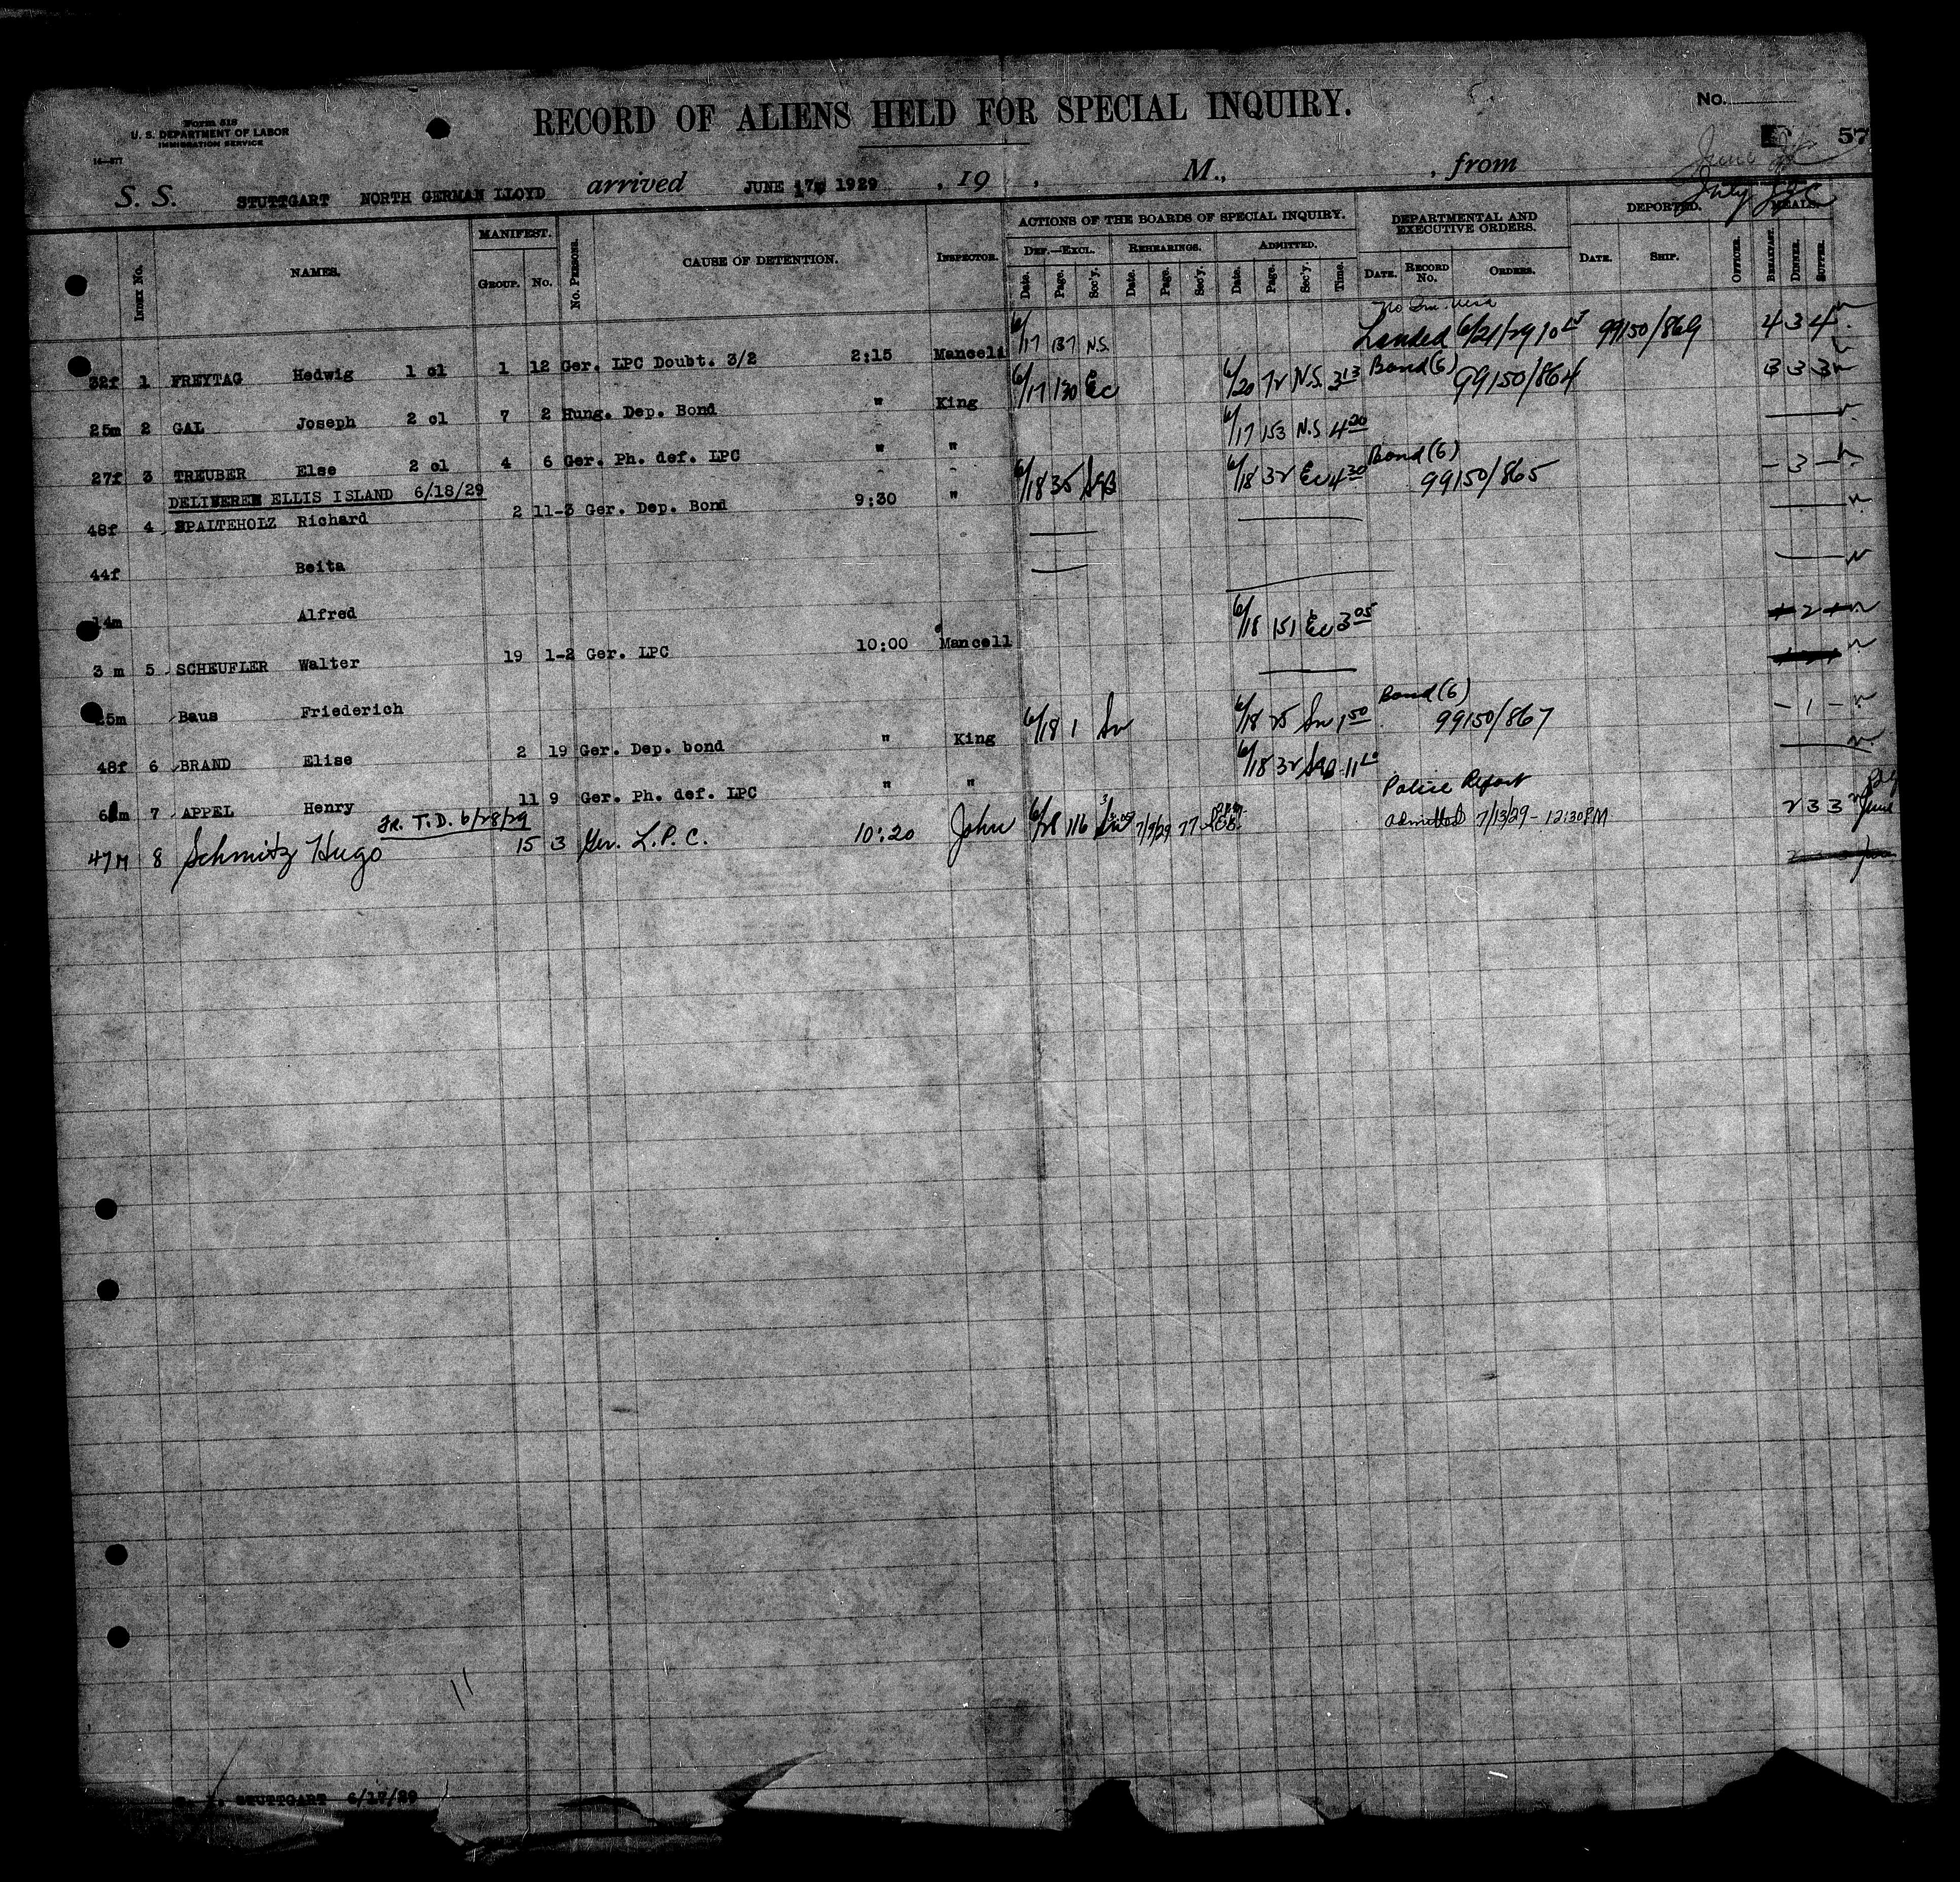 Form 518
U. S. DEPARTMENT OF LABOR
IMMIGRATION SERVICE
14—577
RECORD OF ALIENS HELD FOR SPECIAL INQUIRY.
No.
57
June
July
S. S. STUTTGART NORTH GERMAN LLOYD arrived JUNE 17, 1929 , 19 , M., , from
INDEX NO. NAMES. MANIFEST. GROUP. NO. NO. PERSONS. CAUSE OF DETENTION. INSPECTOR. ACTIONS OF THE BOARDS OF SPECIAL INQUIRY. DEF.—EXCL. Date. Page. Sec'y. REHEARINGS. Date. Page. Sec'y. ADMITTED. Date. Page. Sec'y. Time. DEPARTMENTAL AND EXECUTIVE ORDERS. DATE. RECORD NO. ORDERS. DEPORTED. DATE. SHIP. OFFICER. MEALS. BREAKFAST. DINNER. SUPPER.
32f 1 FREYTAG Hedwig 1 cl 1 12 Ger. LPC Doubt. 3/2 2:15 Mancell 6/17 137 N.S. Landed 6/21/29 99150/869 4 3 4
25m 2 GAL Joseph 2 cl 7 2 Hung. Dep. Bond " King 6/17 130 Ec 6/20 72 N.S. 3 13 Bond (6) 99150/864 3 3 3
27f 3 TREUBER Else 2 cl 4 6 Ger. Ph. def. LPC " " 6/17 153 N.S. 4 20
DELIVERED ELLIS ISLAND 6/18/29
48f 4 SPALTEHOLZ Richard 2 11-3 Ger. Dep. Bond 9:30 " 6/18 35 6/18 32 Ec 4 30 Bond (6) 99150/865 – 3 –
44f Beita
14m Alfred
3 m 5 SCHEUFLER Walter 19 1-2 Ger. LPC 10:00 Mancell 6/18 151 Ec 3 05 2
25m Baus Friederich
48f 6 BRAND Elise 2 19 Ger. Dep. bond " King 6/18 1 6/18 25 1 50 Bond (6) 99150/867 – 1 –
7 APPEL Henry 11 9 Ger. Ph. def. LPC " " 6/18 32
Fr. T.D. 6/28/29
47M 8 Schmitz Hugo 15 3 Ger. L.P.C. 10:20 John 6/28 116 7/7/29 77 Police Report Admitted 7/13/29 – 12:30 PM 2 3 3 June
11
STUTTGART 6/17/29